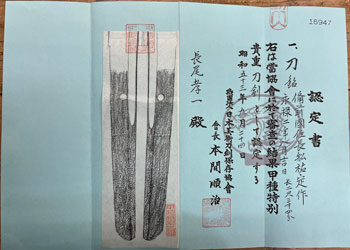 16947
認定書
一、刀 銘 備前國住長船祐定作
永禄二年八月吉日
右は當協會に於て審査の結果甲種特別
貴重刀剣として認定する
昭和五十三年九月二十四日
財團法人日本美術刀剣保存協會
會長 本間順治
長尾孝一殿